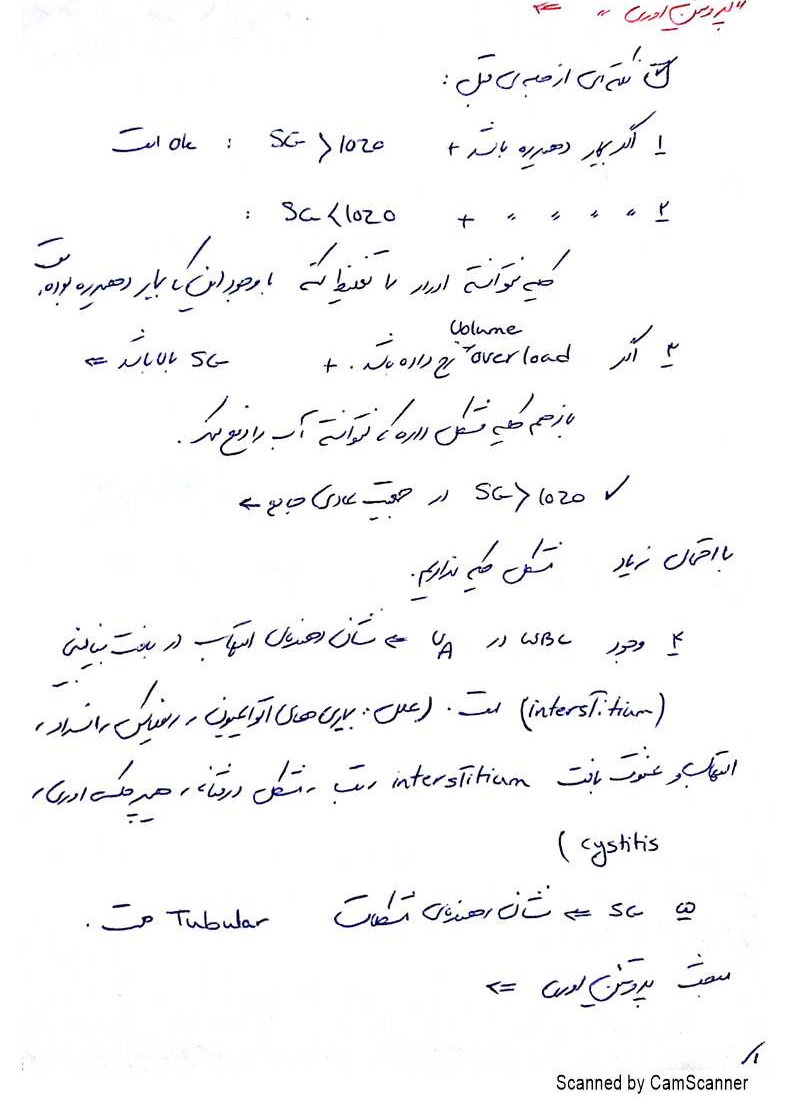 "پروتئین اوری" ⇐
نکته ای از جلسه ی قبل :
۱ اگر بیمار دهیدره باشد + SG > 1020 : عادی است
۲ " " " " + SG < 1020 :
کلیه نتوانسته ادرار را تغلیظ کند با وجود این که بیمار دهیدره بوده است.
۳ اگر Volume overload رخ داده باشد. + SG بالا باشد ⇐
باز هم کلیه مشکل داره که نتوانسته آب را دفع کند.
✓ SG > 1020 در جمعیت عادی جامع ←
با احتمال زیاد مشکل کلیه نداریم.
۴ وجود WBC در UA ⇐ نشان دهنده ی التهاب در بافت بینابینی
(interstitium) است. (علل: بیماری های اتوایمیون، رفلاکس، انسداد،
التهاب و عفونت بافت interstitium، تب، مشکل در، ادراری،
cystitis)
۵ SG ⇐ نشان دهنده ی مشکلات Tubular است.
مبحث پروتئین اوری ⇐
۱/
Scanned by CamScanner